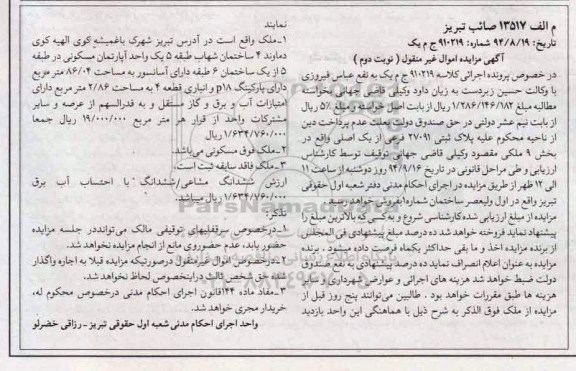 م الف ۱۳۵۱۷ صائب تبریز
تاریخ: ۹۴/۸/۱۹ شماره: ۹۱۰۲۱۹ ج م یک
آگهی مزایده اموال غیر منقول ( نوبت دوم )
در خصوص پرونده اجرائی کلاسه ۹۱۰۲۱۹ ج م یک به نفع عباس فیروزی
با وکالت حسین زبردست به زیان داود وکیلی قاضی جهانی بخواسته
مطالبه مبلغ ۱/۲۸۶/۱۴۶/۱۸۲ ریال از بابت اصل خواسته و مبلغ ۵٪ ریال
از بابت نیم عشر دولتی در حق صندوق دولت بعلت عدم پرداخت دین
از ناحیه محکوم علیه پلاک ثبتی ۲۷۰۹۱ فرعی از یک اصلی واقع در
بخش ۹ ملکی مقصود وکیلی قاضی جهانی توقیف توسط کارشناس
ارزیابی و طی مراحل قانونی در تاریخ ۹۴/۹/۱۶ روز دوشنبه از ساعت ۱۱
الی ۱۲ ظهر از طریق مزایده در اجرای احکام مدنی دفتر شعبه اول حقوقی
تبریز واقع در اول ولیعصر ساختمان شماره۱بفروش خواهد رسید.
مزایده از مبلغ ارزیابی شده کارشناسی شروع و به کسی که بالاترین مبلغ را
پیشنهاد نماید فروخته خواهد شد ده درصد مبلغ پیشنهادی فی المجلس
از برنده مزایده اخذ و ما بقی حداکثر یکماه فرصت داده میشود . برنده
مزایده به عنوان اعلام انصراف نماید ده درصد پیشنهادی به نفع صندوق
دولت ضبط خواهد شد هزینه های اجرائی و عوارض شهرداری و سایر
هزینه ها طبق مقررات خواهد بود . طالبین می‌توانند پنج روز قبل از
مزایده از ملک فوق الذکر به شرح ذیل با هماهنگی این واحد بازدید
نمایند
۱_ملک واقع است در آدرس تبریز شهرک باغمیشه کوی الهیه کوی
دماوند ۴ ساختمان شهاب طبقه ۵ یک واحد آپارتمان مسکونی در طبقه
۵ از یک ساختمان ۶ طبقه دارای آسانسور به مساحت ۸۶/۰۴ متر مربع
دارای پارکینگ p۱۸ و انباری قطعه ۴ به مساحت ۲/۸۶ متر مربع دارای
امتیازات آب و برق و گاز مستقل و به قدرالسهم از عرصه و سایر
مشترکات واحد از قرار هر متر مربع ۱۹/۰۰۰/۰۰۰ ریال جمعا
۱/۶۳۴/۷۶۰/۰۰۰ ریال
۲_ملک فوق مسکونی می‌باشد.
۳_ملک فاقد سابقه ثبت است.
ارزش ششدانگ مشاعی/ششدانگ با احتساب آب برق
۱/۶۳۴/۷۶۰/۰۰۰ ریال میباشد.
تذکر:
۱_درخصوص سرقفلیهای توقیفی مالک می‌تواند در جلسه مزایده
حضور یابد، عدم حضور وی مانع از انجام مزایده نخواهد شد.
۲_درخصوص اموال غیر منقول درصورتیکه مزایده قبلا به اجاره واگذار
شده حق شخص ثالث در این خصوص لحاظ نخواهد شد.
۳_مفاد ماده ۱۴۴قانون اجرای احکام مدنی درخصوص محکوم له،
خریدار مجری خواهد شد.
واحد اجرای احکام مدنی شعبه اول حقوقی تبریز - رزاقی خضرلو